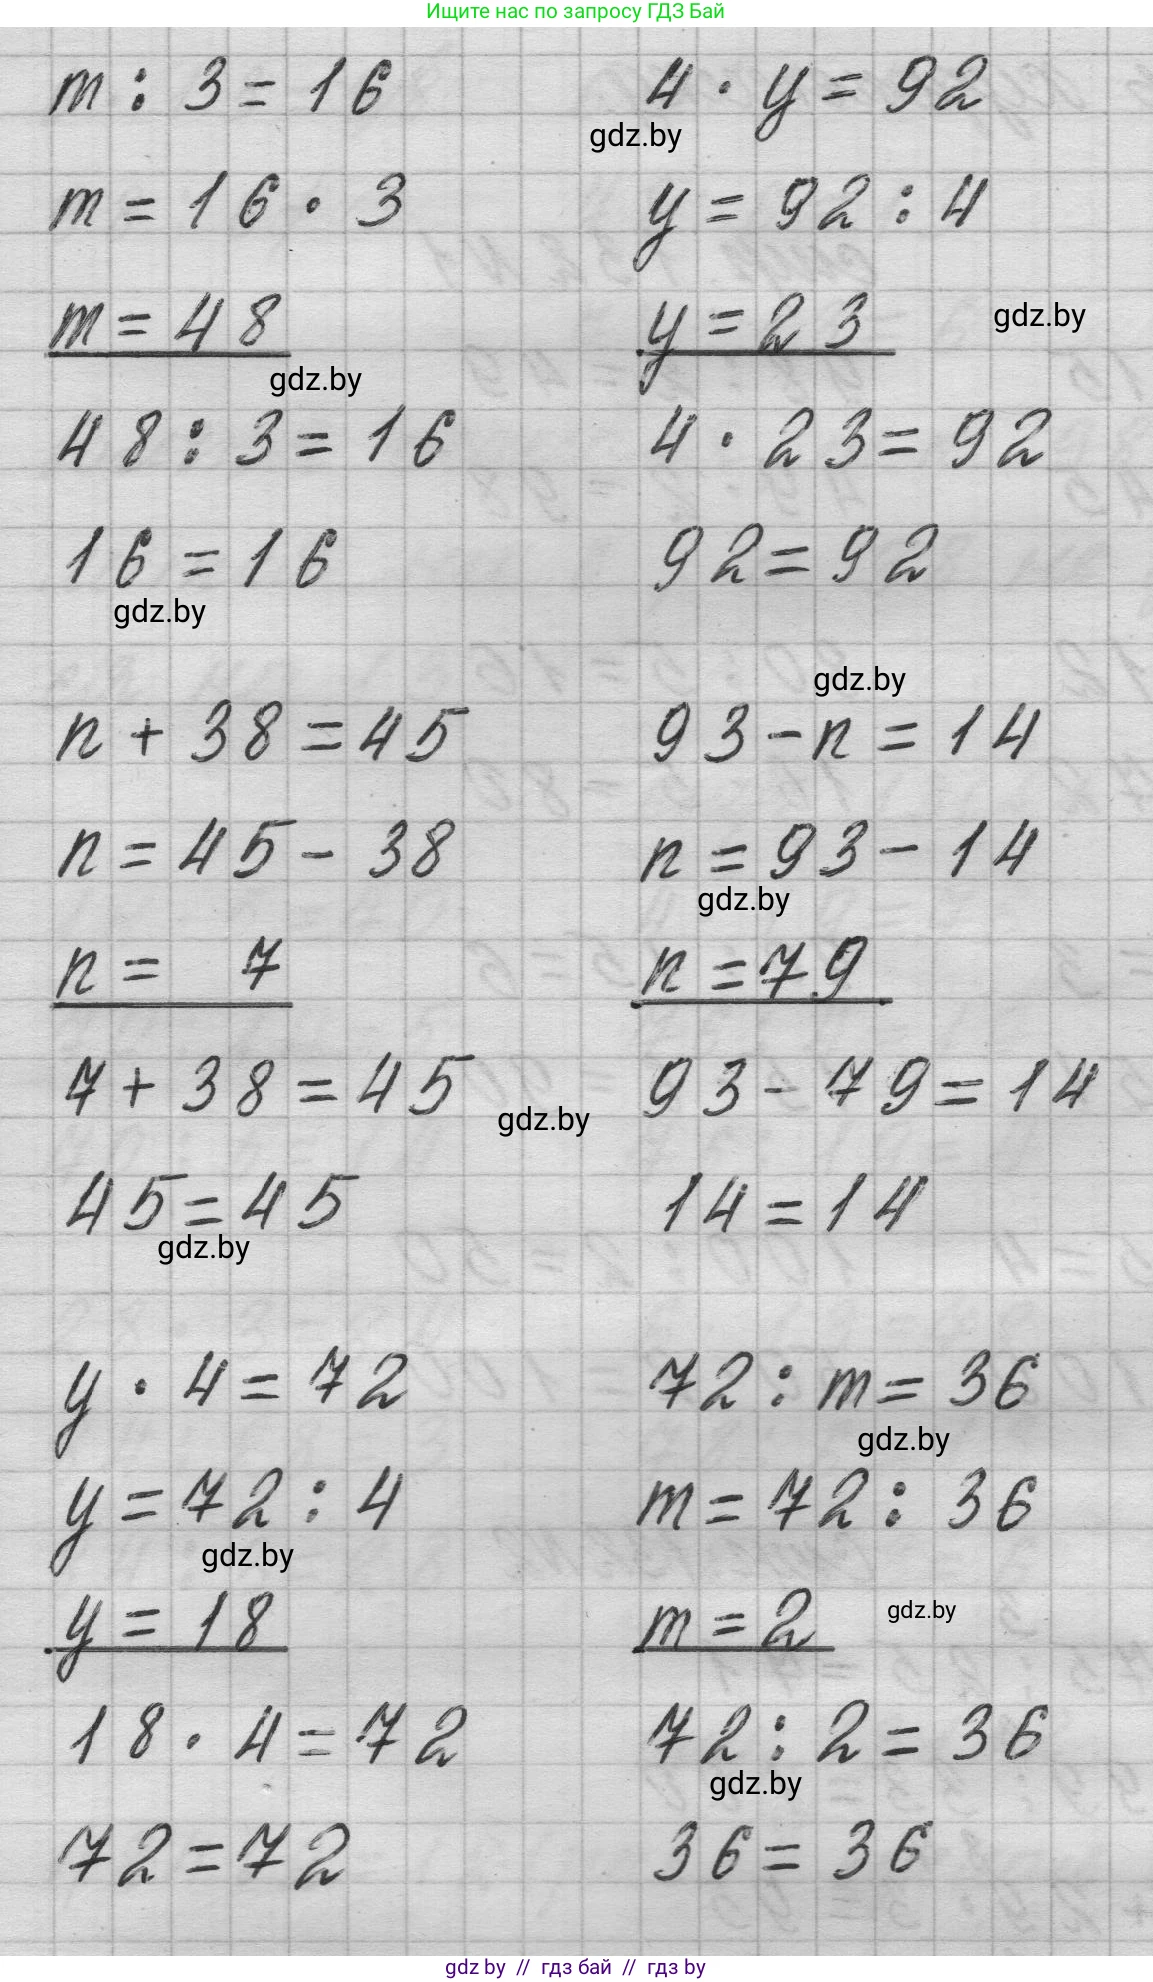 Ищите нас по запросу ГДЗ Бай
m : 3 = 16
4 · y = 92
gdz.by
m = 16 · 3
y = 92 : 4
m = 48
y = 23
gdz.by
gdz.by
48 : 3 = 16
4 · 23 = 92
16 = 16
92 = 92
gdz.by
gdz.by
n + 38 = 45
93 - n = 14
n = 45 - 38
n = 93 - 14
gdz.by
n = 7
n = 79
7 + 38 = 45
93 - 79 = 14
gdz.by
45 = 45
14 = 14
gdz.by
y · 4 = 72
72 : m = 36
gdz.by
y = 72 : 4
m = 72 : 36
gdz.by
y = 18
m = 2
gdz.by
18 · 4 = 72
72 : 2 = 36
gdz.by
72 = 72
36 = 36
gdz by // гдз бай // гдз by